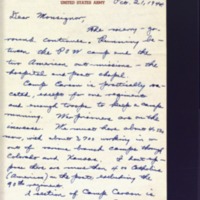 UNITED STATES ARMY
Oct. 21, 1944
Dear Monsignor,
The merry-go-
round continues. Running be-
tween the P.W. camp and the
two American out-missions - the
hospital and post chapel.
Camp Carson is practically va-
cated, except for one regiment
and enough troops to keep a camp
running. The prisoners are on the
increase. We must have about
now, with about 3,000 working in
out of some branch camps through
Colorado and Kansas. I have
(American) on the post, including the
A section of Camp Carson is